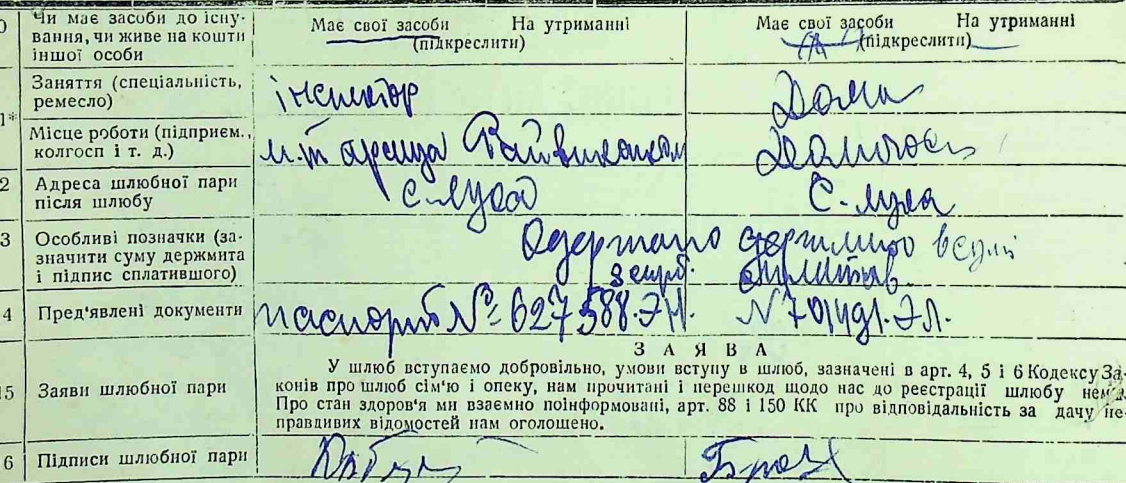 0 Чи має засоби до існування, чи живе на кошти іншої особи
Має свої засоби На утриманні
(підкреслити)
Має свої засоби На утриманні
(підкреслити)
1* Заняття (спеціальність, ремесло)
інспектор
Дома
Місце роботи (підприєм., колгосп і т. д.)
Райвиконком
2 Адреса шлюбної пари після шлюбу
3 Особливі позначки (зазначити суму держмита і підпис сплатившого)
Одержано держмито в сумі
3 карб.
4 Пред'явлені документи
паспорт № 627588. ЭН.
N 701491. ЭЛ.
15 Заяви шлюбної пари
ЗАЯВА
У шлюб вступаємо добровільно, умови вступу в шлюб, зазначені в арт. 4, 5 і 6 Кодексу За-
конів про шлюб сім'ю і опеку, нам прочитані і перешкод щодо нас до реєстрації шлюбу нема.
Про стан здоров'я ми взаємно поінформовані, арт. 88 і 150 КК про відповідальність за дачу не-
правдивих відомостей нам оголошено.
6 Підписи шлюбної пари